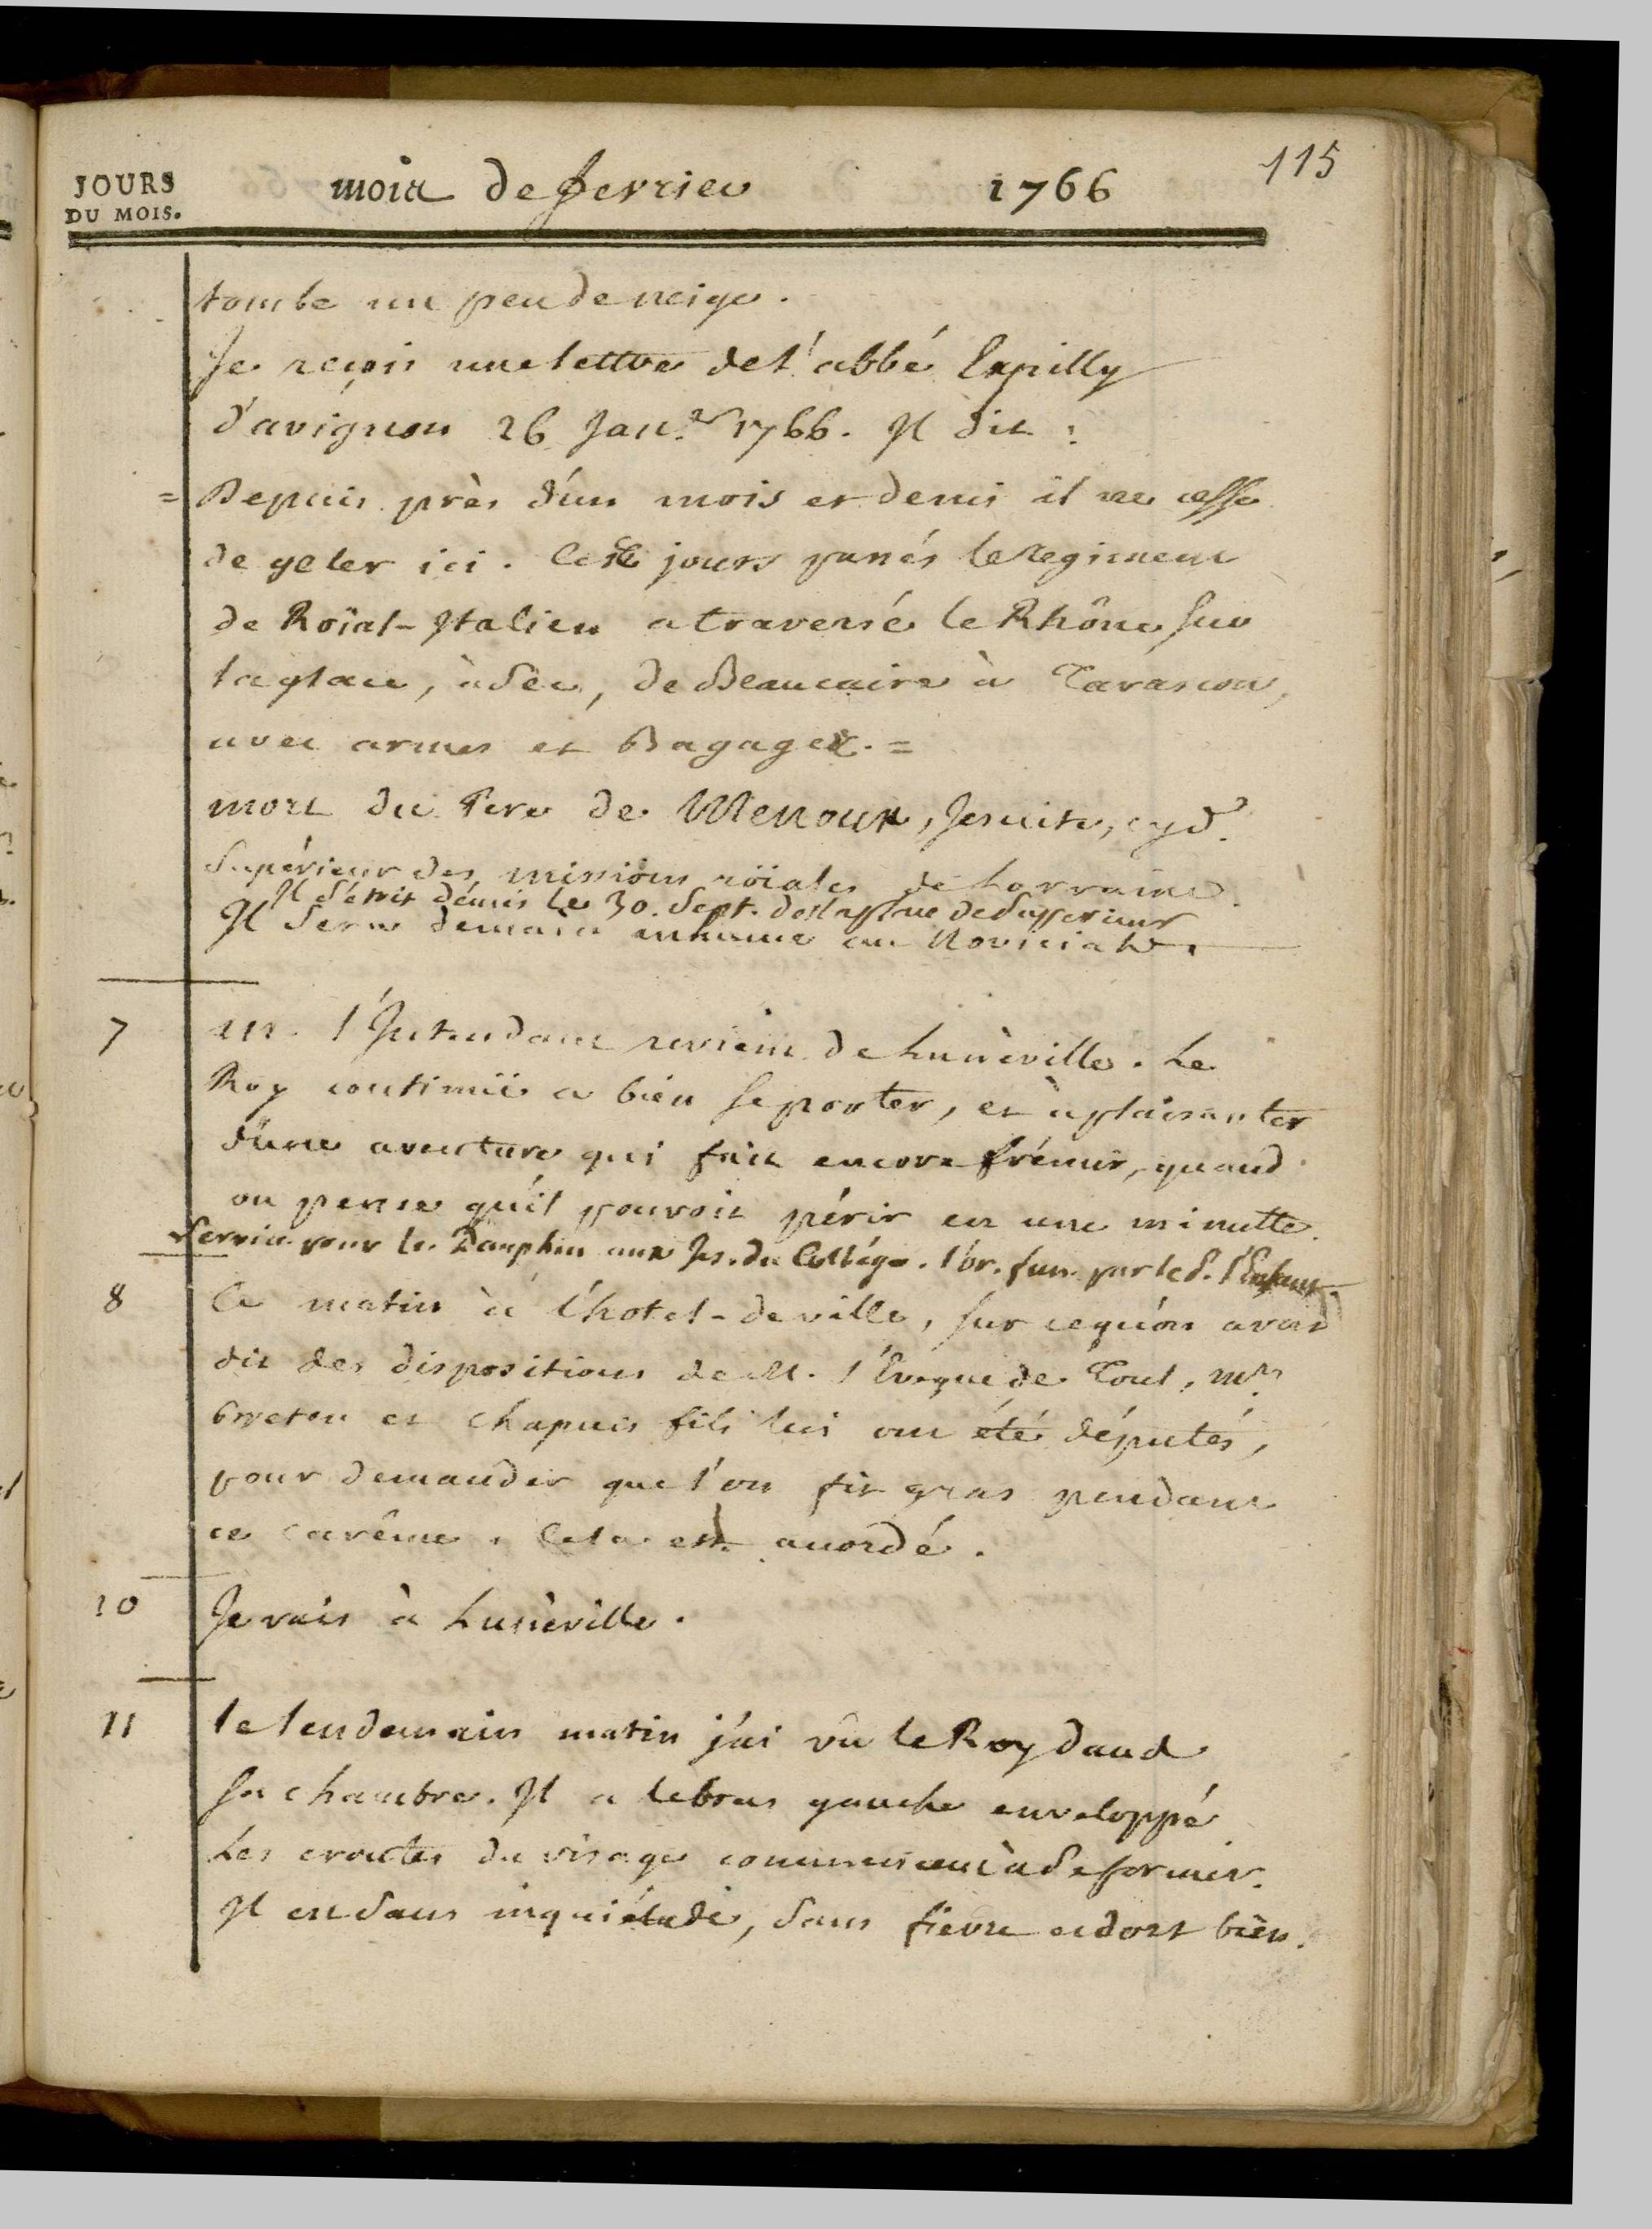 115
JOURS
DU MOIS.
mois de fevrier 1766
tombe un peu de neige.
Je reçois une lettre de l'abbé Expilly
d'avignon 26 Janr. 1766. Il dit :
= Depuis près d'un mois et demi il ne cesse
de geler ici. Ces jours passés le Regiment
de Roïal-Italien a traversé le Rhône sur
la glace, à sec, de Beaucaire à Tarascon,
avec armes et Bagages. =
mort du Pere de Menoux, Jesuite, cyd.
Supérieur des missions roïales de Lorraine.
Il s'étoit démis le 30. Sept. de la place de Superieur
Il sera demain inhumé au Noviciat.
7 M. l'Intendant revient de Lunéville. Le
Roy continuë a bien se porter, et à plaisanter
d'une aventure qui fait encore frémir, quand
on pense qu'il pouvoit périr en une minutte.
Service pour le Dauphin aux Jes. du Collége. l'or. fun. par le P. l'Enfant.
8 Ce matin à l'hotel-de ville, sur ce qu'on avoit
dit des dispositions de M. l'Evêque de Toul, Mrs
breton et Chapuis fils lui ont été députés,
pour demander que l'on fit gras pendant
ce carême. Cela est accordé.
10 Je vais à Lunéville.
11 le lendemain matin j'ai vû le Roy dans
sa chambre. Il a le bras gauche enveloppé
Les croutes du visage commencent à se former.
Il est sans inquiétude, sans fievre et dort bien.